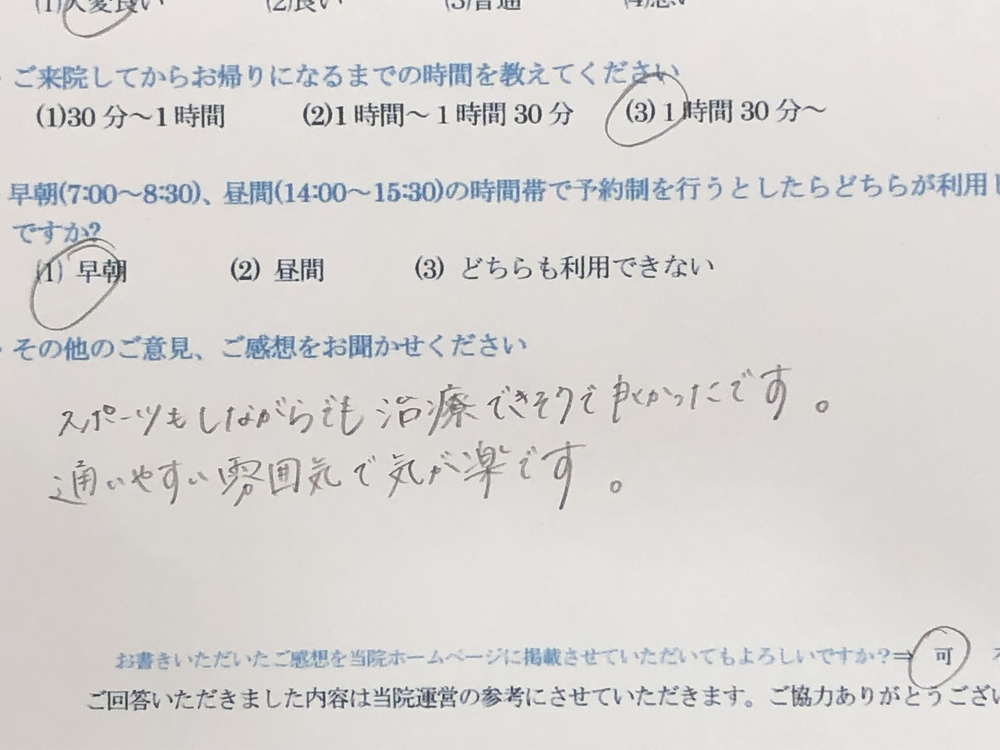 (1)大変良い (2)良い (3)普通 (4)悪い
・ご来院してからお帰りになるまでの時間を教えてください
(1)30分～1時間 (2)1時間～1時間30分 (3)1時間30分～
早朝(7:00～8:30)、昼間(14:00～15:30)の時間帯で予約制を行うとしたらどちらが利用し
ですか?
(1) 早朝 (2) 昼間 (3) どちらも利用できない
・その他のご意見、ご感想をお聞かせください
スポーツもしながらでも治療できそうで良かったです。
通いやすい雰囲気で気が楽です。
お書きいただいたご感想を当院ホームページに掲載させていただいてもよろしいですか?⇒ 可
ご回答いただきました内容は当院運営の参考にさせていただきます。ご協力ありがとうござい